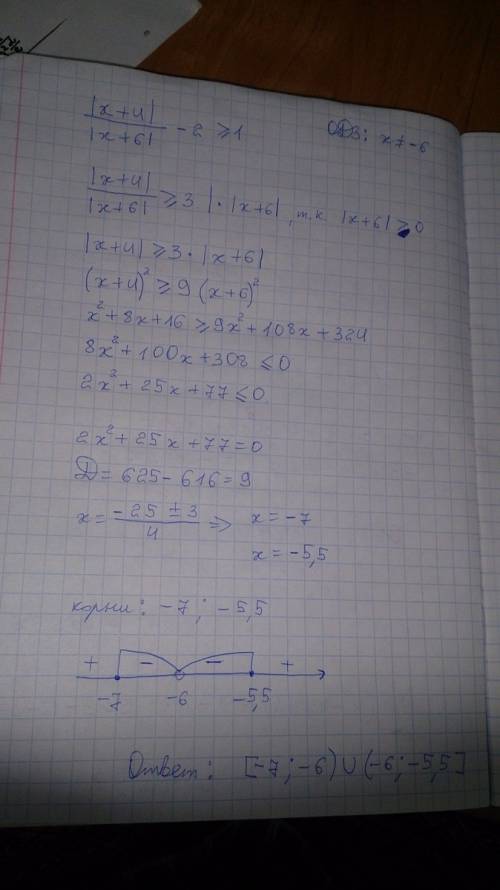 |x+4|/|x+6| - 2 ⩾ 1 ОДЗ: x ≠ -6
|x+4|/|x+6| ⩾ 3 | · |x+6|, т.к |x+6| ⩾ 0
|x+4| ⩾ 3 · |x+6|
(x+4)² ⩾ 9 (x+6)²
x² + 8x + 16 ⩾ 9x² + 108x + 324
8x² + 100x + 308 ⩽ 0
2x² + 25x + 77 ⩽ 0
2x² + 25x + 77 = 0
D = 625 - 616 = 9
x = (-25 ± 3)/4 ⇒ x = -7
x = -5,5
корни: -7; -5,5
+ - - +
-7 -6 -5,5
Ответ: [-7; -6) ∪ (-6; -5,5]